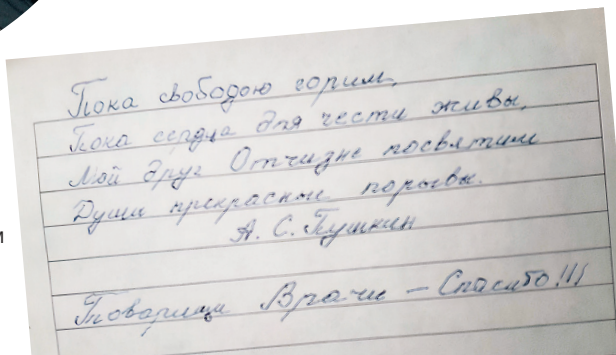 Пока свободою горим,
Пока сердца для чести живы,
Мой друг Отчизне посвятим
Души прекрасные порывы.
А. С. Пушкин
Товарищи Врачи — Спасибо!!!
и